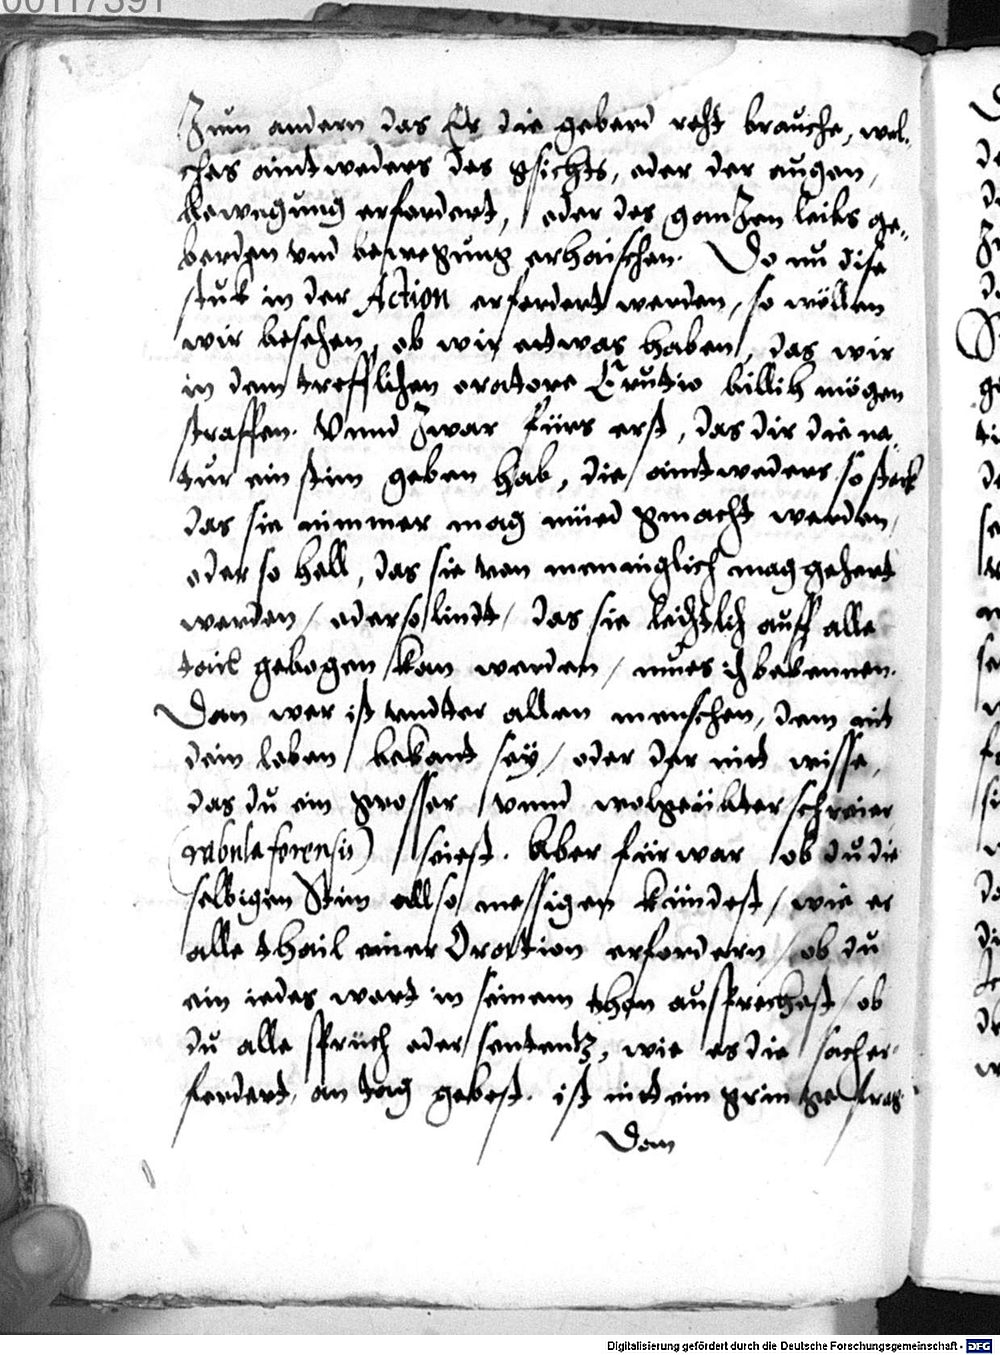 00117391
Zum andern das Er die geberd reht brauche, wel-
ches aintweders des gsichts, oder der augen,
bewegung erfordert, oder des ganzen leibs ge-
berden vnd bewegung erhaischen. Do nu dise
stuk in der Action erfordert werden, so wöllen
wir besehen, ob wir etwas haben, das wir
in dem trefflichen oratore billih mögen
straffen. Vnnd Zwar fürs erst, das dir die na-
tur ein stim geben hab, die aintweders so sterk
das sie nimmer mag müed gmacht werden,
oder so hell, das sie von meniglich mag gehert
werden / oder so lindt / das sie leichtlich auff alle
tail gebogen kan werden / mues ich bekennen.
Dan wer ist vndter allen menschen, dem nit
dein leben bekant sey / oder der nit wisse,
das du ein grosser vnnd wolgeübter schreier
(rabula forensis) seiest. Aber fürwar ob du die
selbigen Stim allso messigen kündest / wie es
alle thail einer Oration erfordern / ob du
ein iedes wort in seinem thon aussprechest / ob
du alle sprüch oder sententz, wie es die sach er-
fordert, an tag gebest. ist nit ein gring
Dan
Digitalisierung gefördert durch die Deutsche Forschungsgemeinschaft - DFG